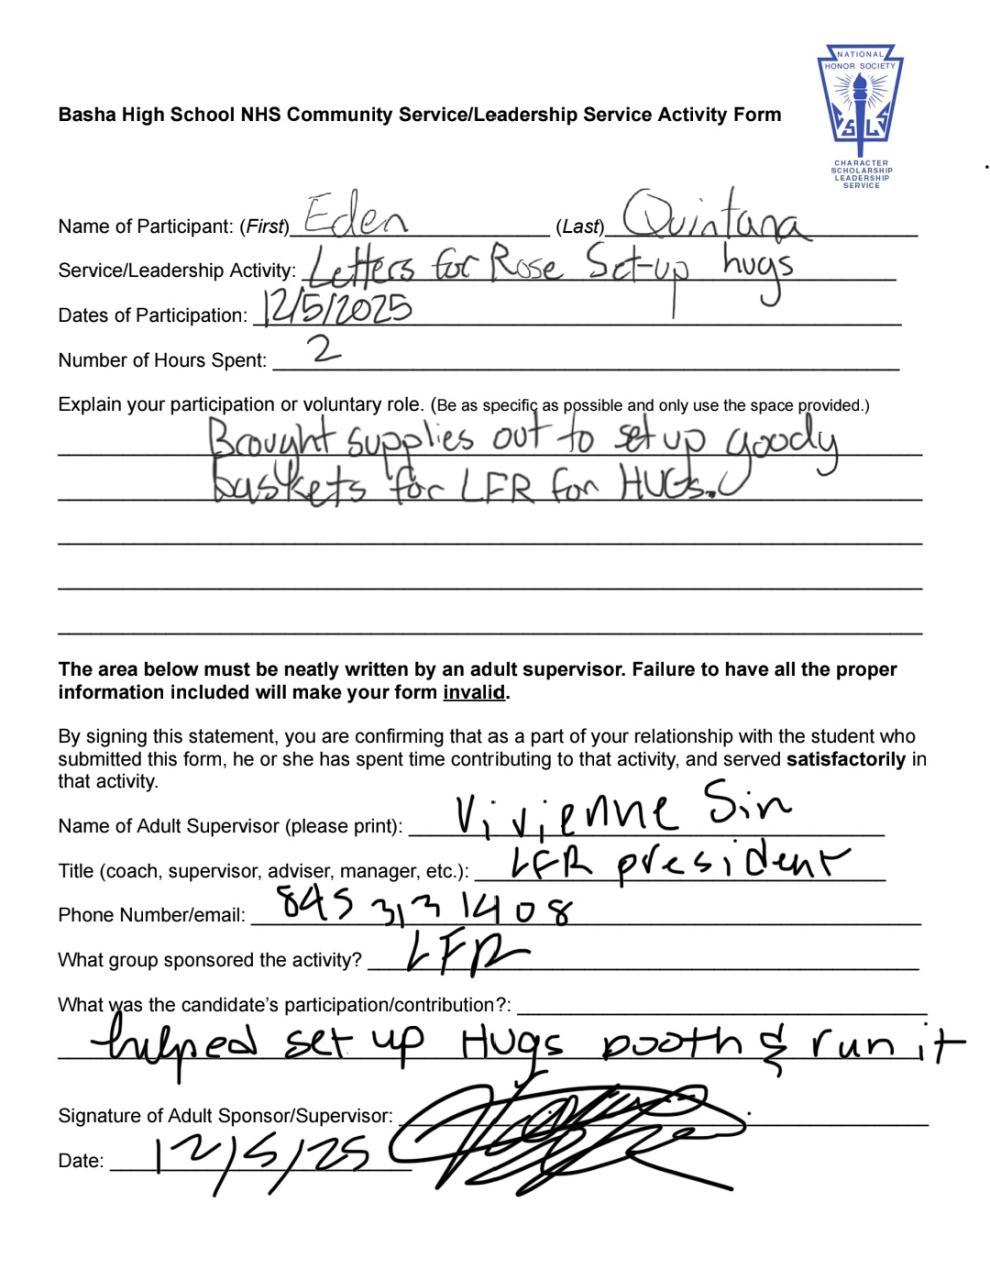 NATIONAL
HONOR SOCIETY
C S L S
CHARACTER
SCHOLARSHIP
LEADERSHIP
SERVICE
Basha High School NHS Community Service/Leadership Service Activity Form
Name of Participant: (First) Eden (Last) Quintana
Service/Leadership Activity: Letters for Rose Set-up hugs
Dates of Participation: 12/5/2025
Number of Hours Spent: 2
Explain your participation or voluntary role. (Be as specific as possible and only use the space provided.)
Brought supplies out to set up goody
baskets for LFR for HUGs.
The area below must be neatly written by an adult supervisor. Failure to have all the proper
information included will make your form invalid.
By signing this statement, you are confirming that as a part of your relationship with the student who
submitted this form, he or she has spent time contributing to that activity, and served satisfactorily in
that activity.
Name of Adult Supervisor (please print): Vivienne Sin
Title (coach, supervisor, adviser, manager, etc.): LFR president
Phone Number/email: 845 313 1408
What group sponsored the activity? LFR
What was the candidate's participation/contribution?:
helped set up Hugs booth & run it
Signature of Adult Sponsor/Supervisor:
Date: 12/5/25